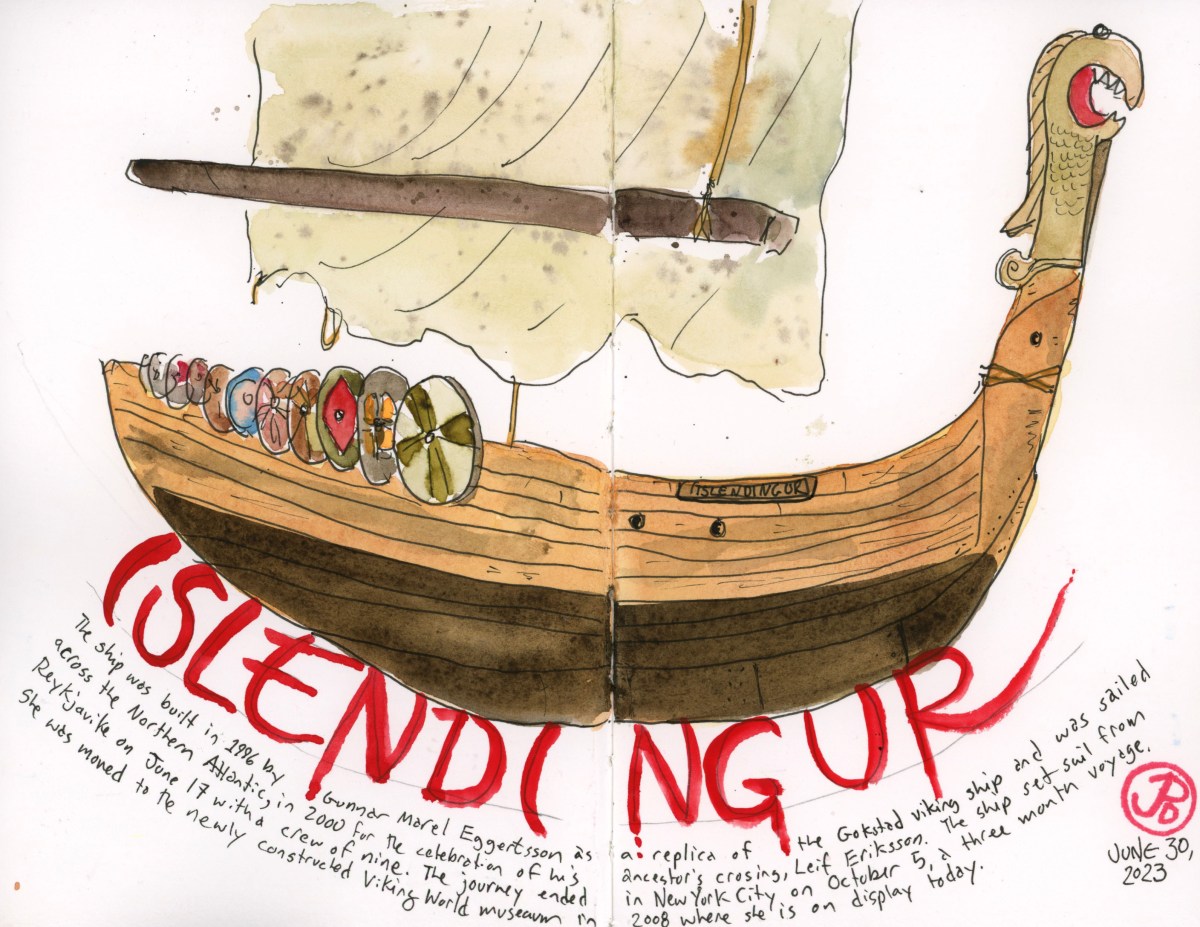 ISLENDINGUR
ISLENDINGUR
The ship was built in 1996 by Gunnar Marel Eggertsson as a replica of the Gokstad viking ship and was sailed
across the Northern Atlantic, in 2000 for the celebration of his ancestor's crosing, Leif Eriksson. The ship set sail from
Reykjavike on June 17 with a crew of nine. The journey ended in New York City on October 5, a three month voyage.
She was moved to the newly constructed Viking World museaum in 2008 where she is on display today.
JPD
JUNE 30,
2023